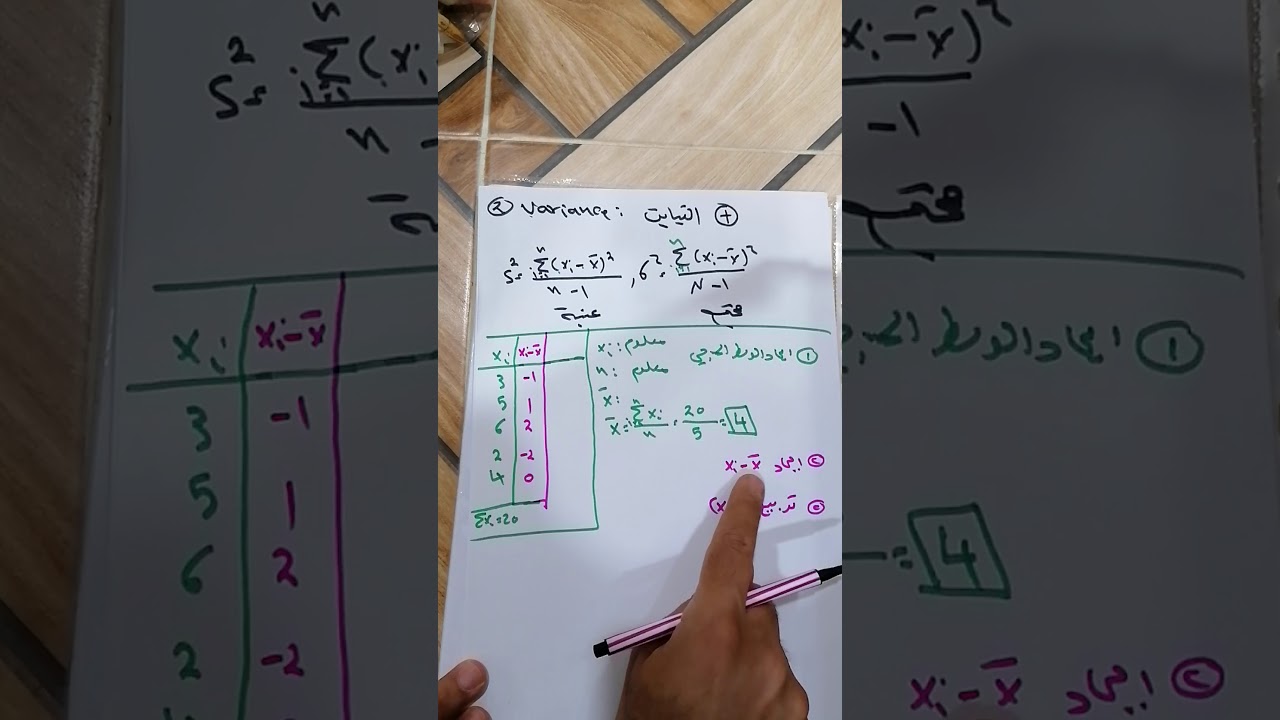 ② Variance: التباين ④
S² = Σⁿᵢ₌₁(xᵢ-x̄)² / n-1 , σ² = Σⁿᵢ₌₁(xᵢ-x̄)² / N-1
عينة
xᵢ xᵢ-x̄
3 -1
5 1
6 2
2 -2
4 0
Σxᵢ=20
xᵢ: معلوم
n: معلوم
x̄:
x̄ = Σⁿᵢ₌₁xᵢ / n = 20 / 5 = 4
① ايجاد الوسط الحسابي
② ايجاد xᵢ-x̄
③ تربيع